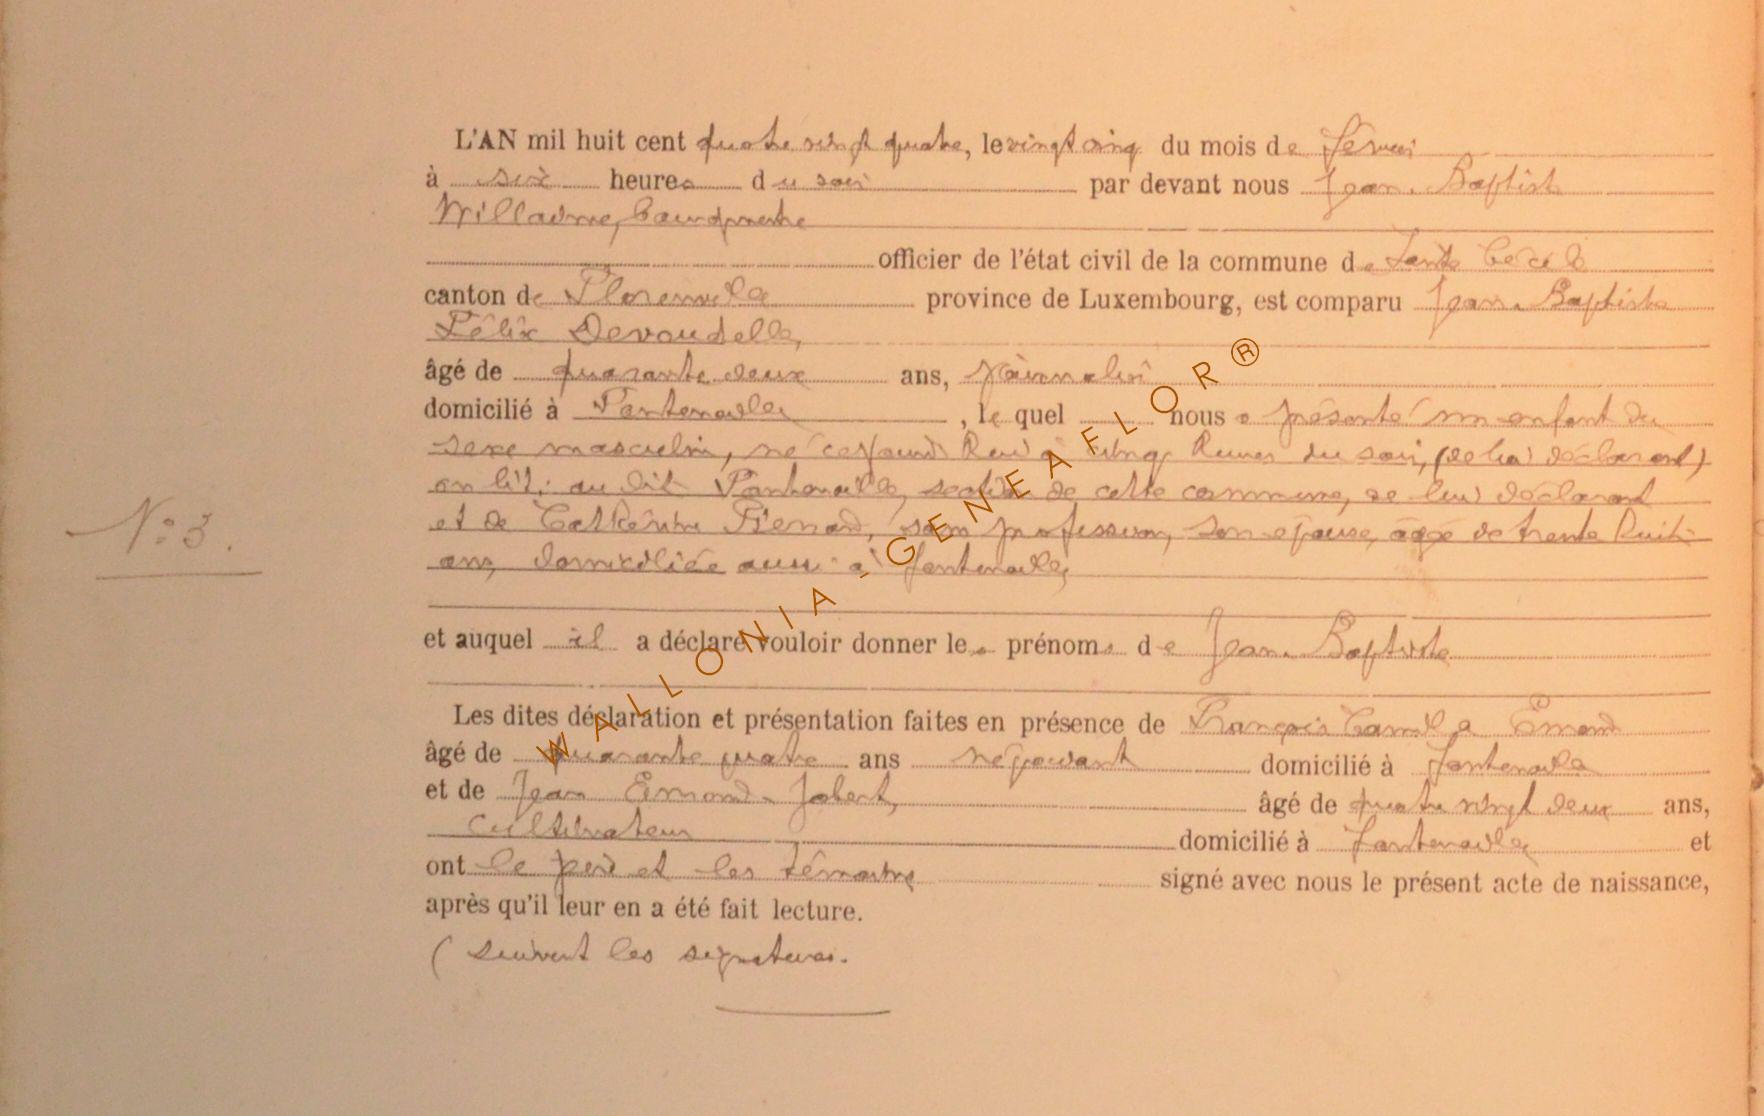 L'AN mil huit cent quatre vingt quatre, le vingt cinq du mois de
à six heures du soir par devant nous Jean Baptiste
Willaime, bourgmestre
officier de l'état civil de la commune de Sainte Cécile
canton de Florenville province de Luxembourg, est comparu Jean Baptiste
Félix Devaudelle,
âgé de quarante deux ans, journalier
domicilié à Fontenoille, le quel nous a présenté un enfant du
sexe masculin, né ce jourd'hui à cinq heures du soir, (de lui déclarant)
au dit Fontenoille, section de cette commune, de lui déclarant
et de Catherine Pierrard, sans profession, son épouse, âgé de trente huit
ans, domiciliée aussi à fontenoille,
N° 3.
et auquel il a déclaré vouloir donner les prénoms de Jean Baptiste
Les dites déclaration et présentation faites en présence de François Camille Emond
âgé de quarante quatre ans négociant domicilié à fontenoille
et de Jean Emond Jobert, âgé de quatre vingt deux ans,
cultivateur domicilié à fontenoille et
ont le père et les témoins signé avec nous le présent acte de naissance,
après qu'il leur en a été fait lecture.
( suivent les signatures.
WALLONIA-GENEAFLOR®